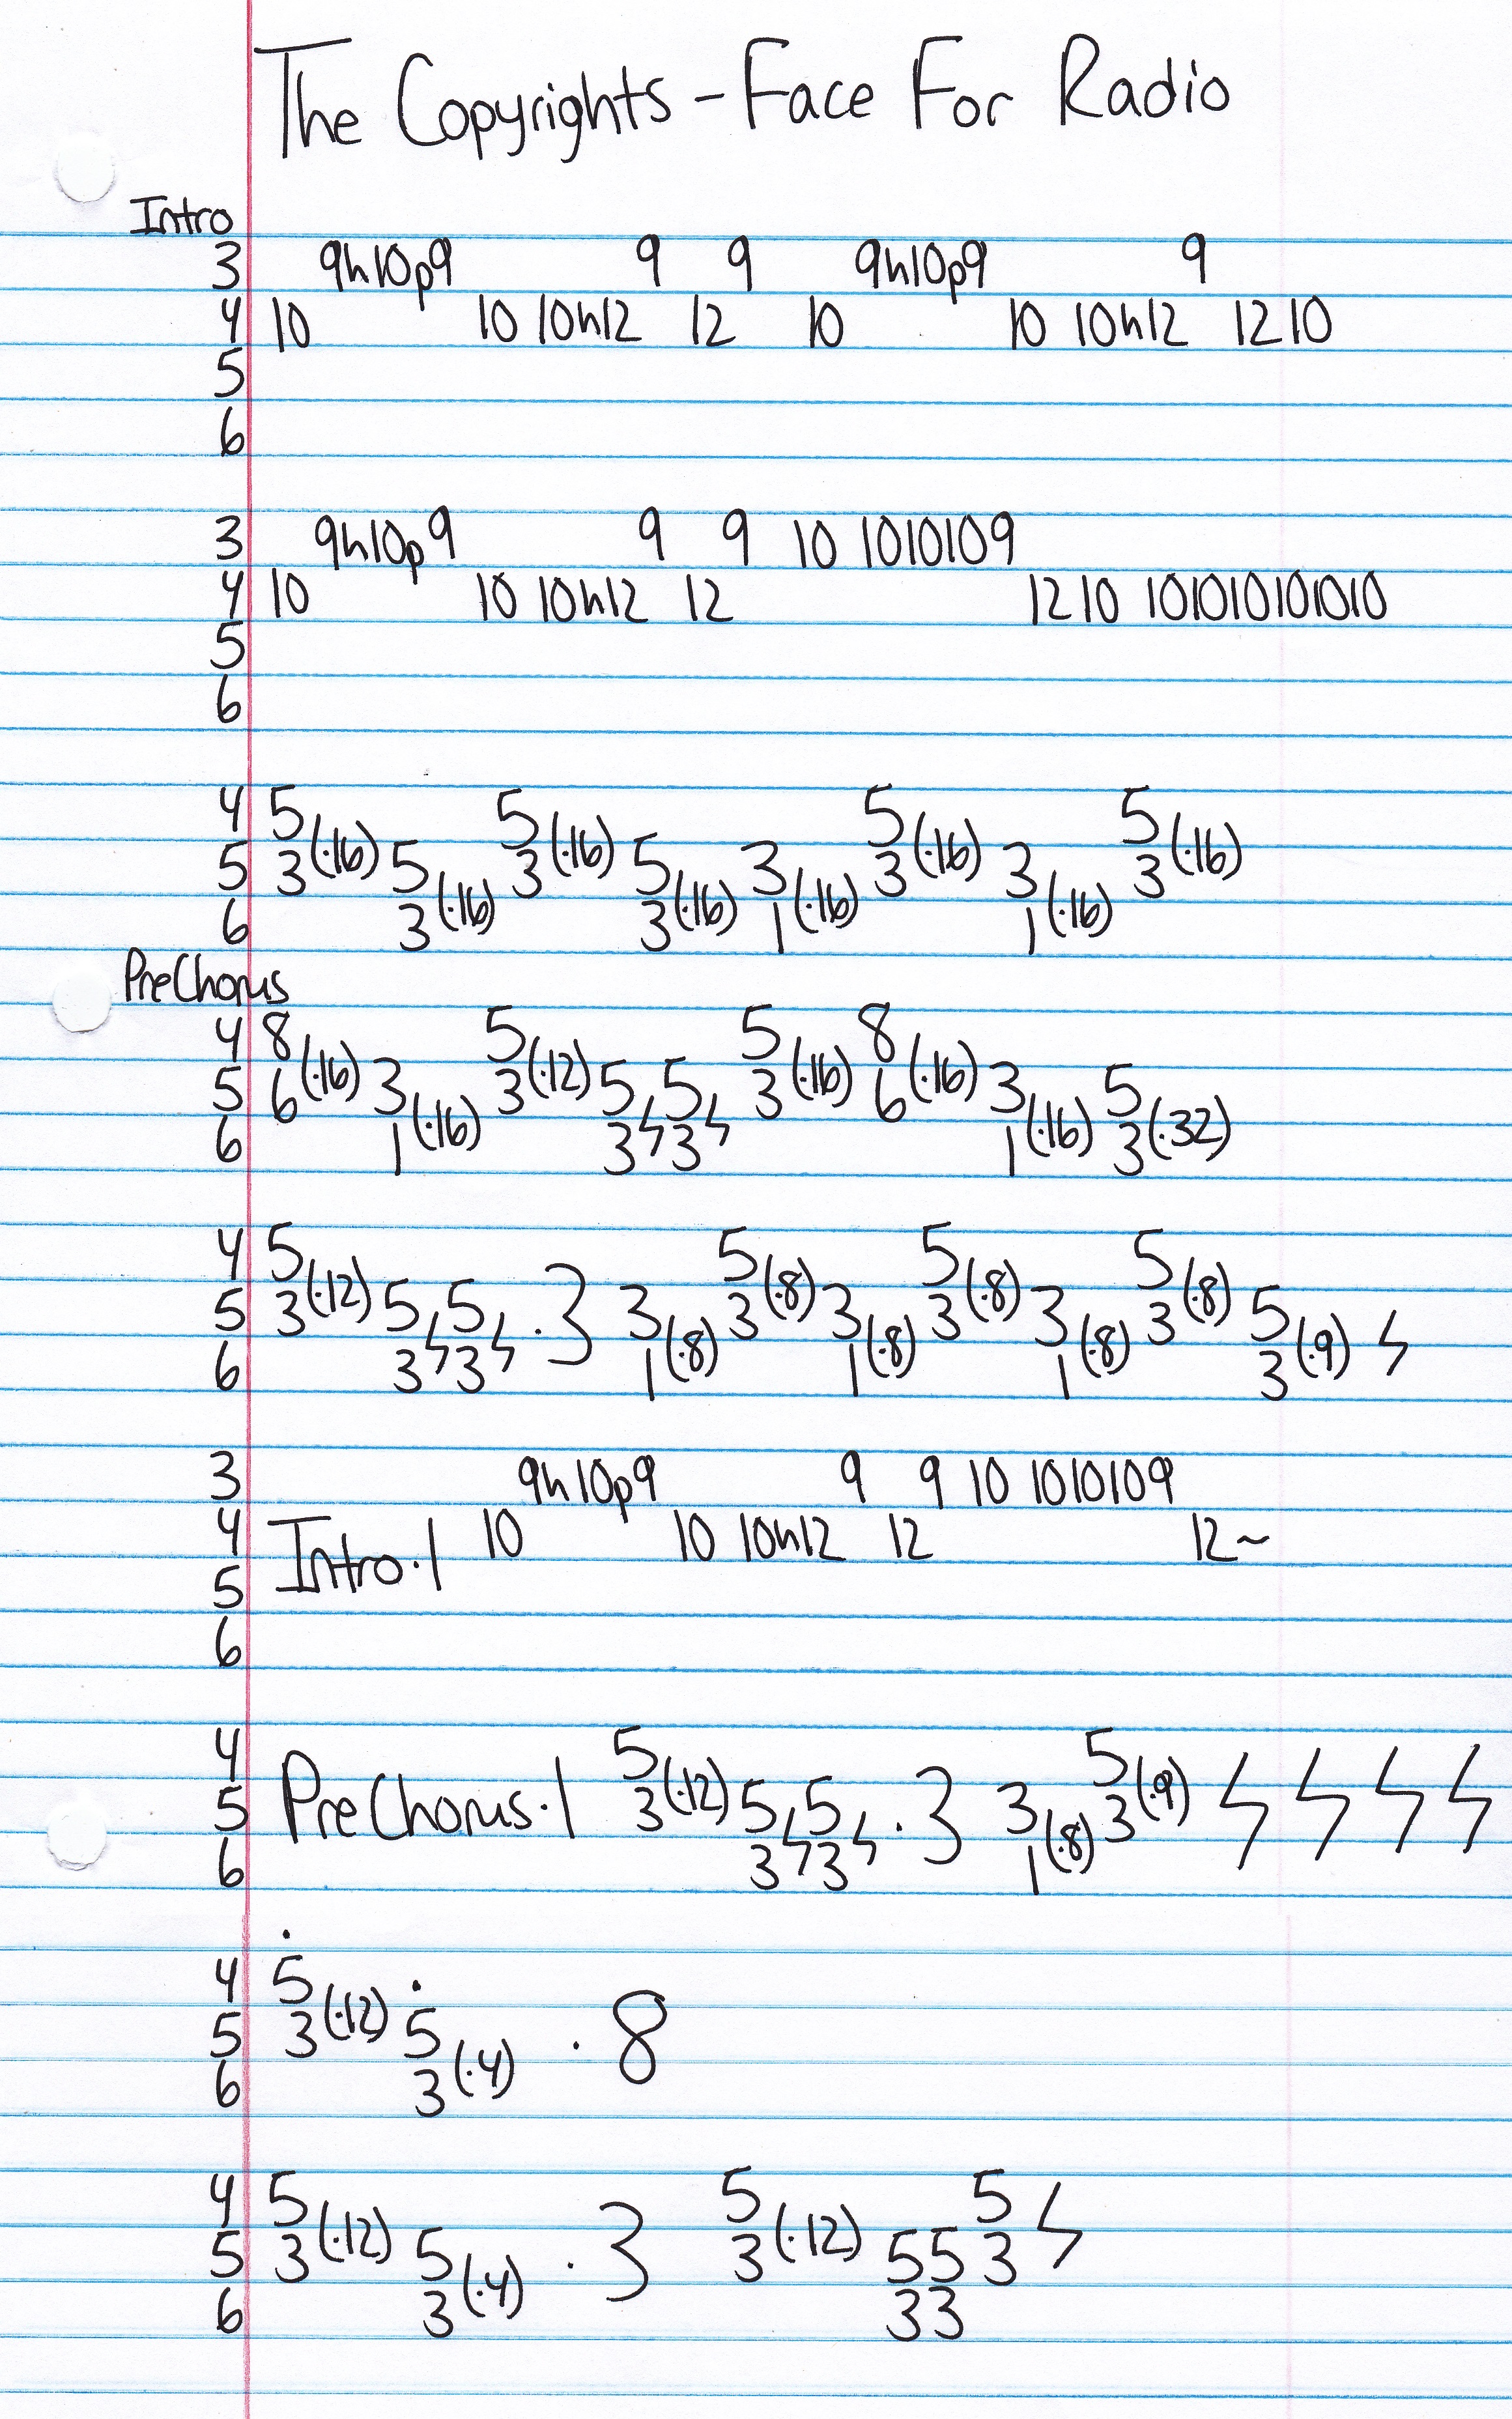 The Copyrights - Face For Radio
Intro
3 9h10p9 9 9 9h10p9 9
4 10 10 10h12 12 10 10 10h12 12 10
5
6
3 9h10p9 9 9 10 1010109
4 10 10 10h12 12 12 10 101010101010
5
6
4 5 5 5 5
5 3(·16) 5 3(·16) 5 3 3(·16) 3 3(·16)
6 3(·16) 3(·16) 1(·16) 1(·16)
PreChorus
4 8 5 5 8
5 6(·16) 3 3(·12) 5 5 3(·16) 6(·16) 3 5
6 1(·16) 3 𝄽 3 𝄽 1(·16) 3(·32)
4 5 5 5 5
5 3(·12) 5 5 · 3 3 3(·8) 3 3(·8) 3 3(·8) 5
6 3 𝄽 3 𝄽 1(·8) 1(·8) 1(·8) 3(·9) 𝄽
3 9h10p9 9 9 10 1010109
4 Intro·1 10 10 10h12 12 12~
5
6
4 5 5
5 PreChorus·1 3(·12) 5 5 · 3 3 3(·9) 𝄽 𝄽 𝄽 𝄽
6 3 𝄽 3 𝄽 1(·8)
4 5
5 3(·12) 5 · 8
6 3(·4)
4 5 5 5
5 3(·12) 5 · 3 3(·12) 55 3 𝄽
6 3(·4) 33